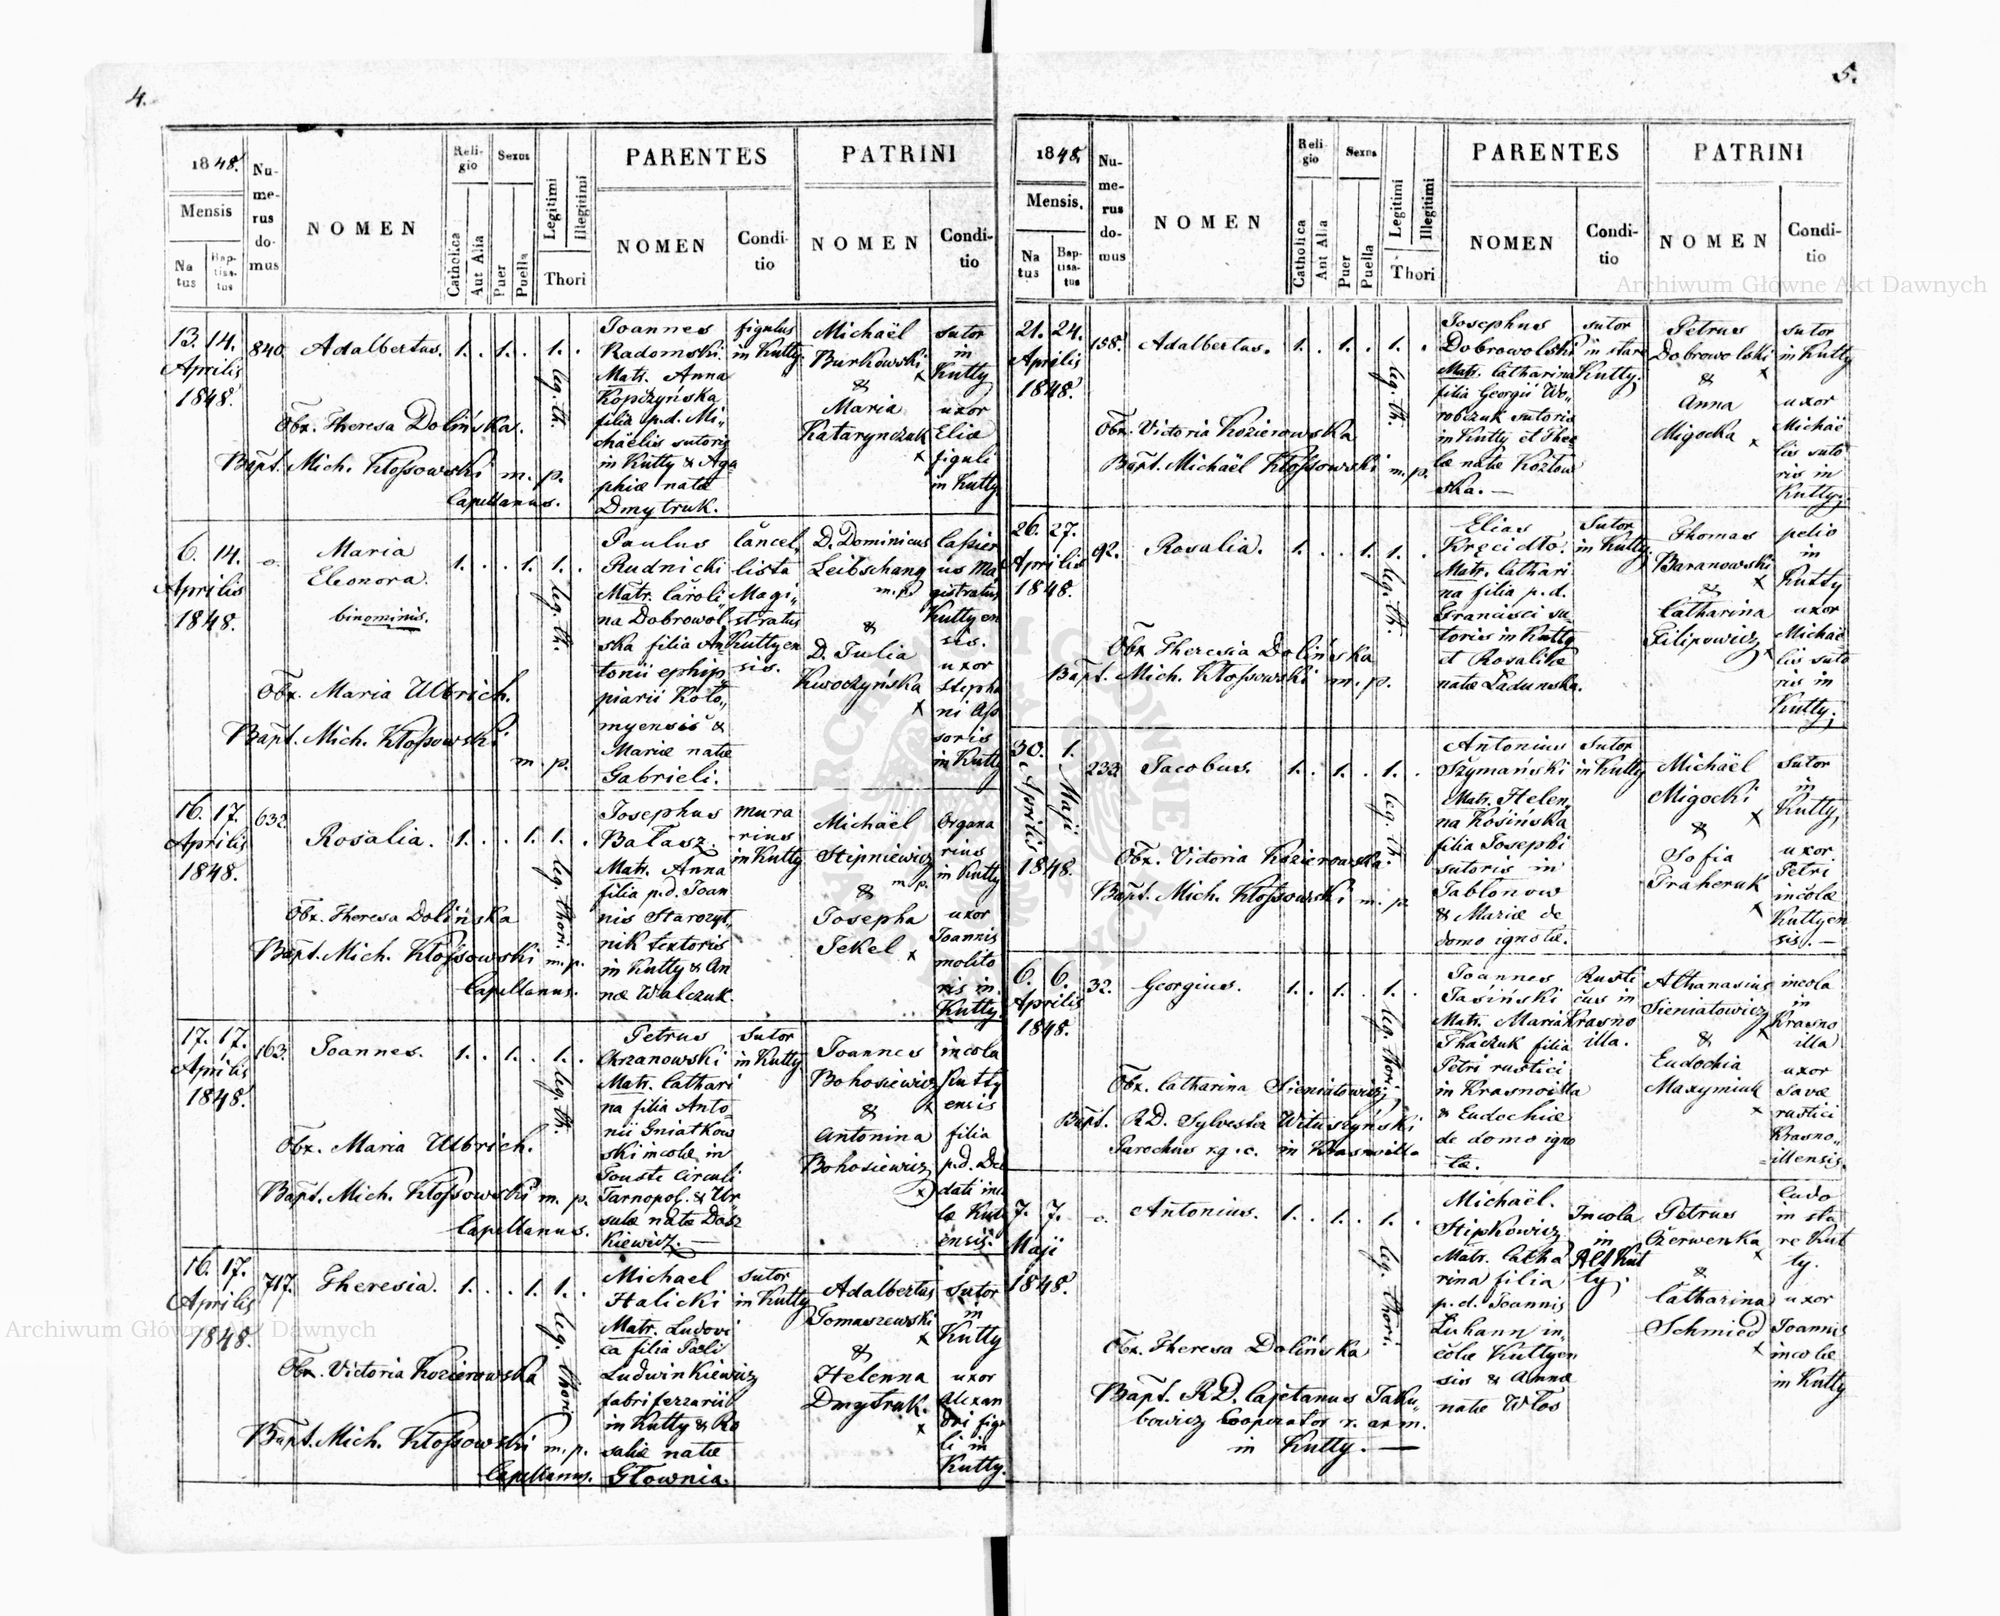 4.
1848.
Mensis
Na
tus
Bap-
tisa-
tus
Nu-
me-
rus
do-
mus
NOMEN
Reli-
gio
Catholica
Aut Alia
Sexus
Puer
Puella
Legitimi
Illegitimi
Thori
PARENTES
NOMEN
Condi-
tio
PATRINI
NOMEN
Condi-
tio
13. 14.
Aprilis
1848.
840.
Adalbertus.
1. . 1. . 1. .
leg. th.
Obx. Theresa Dolińska.
Bapt. Mich. Kłossowski m. p.
Capellanus.
Joannes
Radomski.
Matr. Anna
Kopczyńska
filia p.d. Mi„
chaëlis sutoris
in Kutty & Aga
phiæ natæ
Dmytruk.
figulus
in Kutty.
Michaël
Burkowski
x
&
Maria
Katarynczuk
x
sutor
in
Kutty
uxor
Eliæ
figuli
in Kutty.
6. 14.
Aprilis
1848.
o.
Maria
Eleonora.
binominis.
1. . . 1. 1. .
leg. th.
Obx. Maria Ulbrich.
Bapt. Mich. Kłossowski
m. p.
Paulus
Rudnicki
Matr. Caroli
na Dobrowol
ska filia An
tonii ephip„
piarii Koło„
myensis &
Mariæ natæ
Gabrieli.
Cancel„
lista
Magi„
stratus
Kuttyen
sis.
D. Dominicus
Leibschang
m.p.
&
D. Julia
Kwoczyńska
x
Cassier
us Ma
gistratus
Kuttyen
sis.
uxor
Stepha
ni Ass
soris
in Kutty
16. 17.
Aprilis
1848.
632.
Rosalia.
1. . . 1. 1. .
leg. thori.
Obx. Theresa Dolińska
Bapt. Mich. Kłossowski m. p.
Capellanus.
Josephus
Bałasz.
Matr. Anna
filia p.d. Joan
nis Starozyt„
nik textoris
in Kutty & An
næ Walczuk.
mura
rius
in Kutty
Michaël
Stipniewicz
m.p.
&
Josepha
Jekel x
Organa
rius
in Kutty
uxor
Joannis
molito
ris in
Kutty.
17. 17.
Aprilis
1848.
163.
Joannes.
1. . 1. . 1. .
leg. th.
Obx. Maria Ulbrich.
Bapt. Mich. Kłossowski m. p.
Capellanus.
Petrus
Chrzanowski
Matr. Cathari
na filia Anto„
nii Gniatkow
ski incolæ in
Touste Circuli
Tarnopol. & Ur
sulæ natæ Dasz
kiewicz. —
sutor
in Kutty
Joannes
Bohosiewicz
x
&
Antonina
Bohosiewicz
x
incola
Kutty
ensis
filia
p.d. De
dati inco
læ Kutt
ensis.
16. 17.
Aprilis
1848.
717.
Theresia.
1. . . 1. 1. .
leg. thori
Obx. Victoria Kozierowska
Bapt. Mich. Kłossowski m. p.
Capellanus.
Michael
Halicki
Matr. Ludovi
ca filia Pauli
Ludwinkiewicz
fabri ferrarii
in Kutty & Ro
saliæ natæ
Głownia.
sutor
in Kutty
Adalbertus
Tomaszewski
x
&
Helenna
Dmytruk.
x
sutor
in
Kutty
uxor
Alexan
dri figu
li in
Kutty.
5.
1848.
Mensis.
Na
tus
Bap-
tisa-
tus
Nu-
me-
rus
do-
mus
NOMEN
Reli-
gio
Catholica
Ant Alia
Sexus
Puer
Puella
Legitimi
Illegitimi
Thori
PARENTES
NOMEN
Condi-
tio
PATRINI
NOMEN
Condi-
tio
Archiwum Główne Akt Dawnych
21. 24.
Aprilis
1848.
158.
Adalbertus.
1. . 1. . 1. .
leg. th.
Obx. Victoria Kozierowska
Bapt. Michaël Kłossowski m. p.
Josephus
Dobrowolski
Matr. Catharina
filia Georgii Wo„
robczuk sutoris
in Kutty et Thec
læ natæ Kozłow
ska. —
sutor
in stare
Kutty.
Petrus
Dobrowolski
x
&
Anna
Migocka x
sutor
in Kutty
uxor
Michaë
lis suto
ris in
Kutty.
26. 27.
Aprilis
1848.
92.
Rosalia.
1. . . 1. 1. .
leg. th.
Obx Theresia Dolińska
Bapt. Mich. Kłossowski m. p.
Elias
Kręcidło.
Matr. Cathari
na filia p.d.
Francisci su„
toris in Kutty
et Rosaliæ
natæ Ładunska.
Sutor
in Kutty.
Thomas
Baranowski
x
&
Catharina
Filipowicz x
pelio
in
Kutty
uxor
Michaë
lis suto
ris in
Kutty.
30. 1.
Aprilis Maji
1848.
233.
Jacobus.
1. . 1. . 1. .
leg. th.
Obx. Victoria Kozierowska.
Bapt. Mich. Kłossowski m. p.
Antonius
Szymański
Matr. Helen„
na Kosińska
filia Josephi
sutoris in
Jabłonow
& Mariæ de
domo ignotæ.
Sutor
in Kutty
Michaël
Migocki
x
&
Sofia
Traheruk
x
Sutor
in
Kutty,
uxor
Petri
incolæ
Kuttyen
sis. —
6. 6.
Aprilis
1848.
32.
Georgius.
1. . 1. . 1. .
leg. thori.
Obx. Catharina Sieniatowicz
Bapt. RD. Sylvester Wituszyński
Parochus r.g.c. in Krasnoilla
Joannes
Jasiński
Matr. Maria
Tkaczuk filia
Petri rustici
in Krasnoilla
& Eudochiæ
de domo igno
tæ.
Rusti
cus in
Krasno
illa.
Athanasius
Sieniatowicz
x
&
Eudochia
Maxymiuk
x
incola
in
Krasno
illa
uxor
Savæ
rustici
Krasno„
illensis.
7. 7.
Maji
1848.
o.
Antonius.
1. . 1. . 1. .
leg. thori.
Obx. Theresa Dolińska
Bapt. RD. Cajetanus Jaku„
bowicz Cooperator r. arm.
in Kutty. —
Michaël.
Stipkowicz
Matr. Catha
rina filia
p.d. Joannis
Luhann in„
colæ Kuttyen
sis & Annæ
natæ Włos
Incola
in
Alt Kut
ty.
Petrus
Czerwenka
x
&
Catharina
Schmied
x
Ludo
in sta
re Kut
ty.
uxor
Joannis
incolæ
in Kutty
Archiwum Główne Akt Dawnych